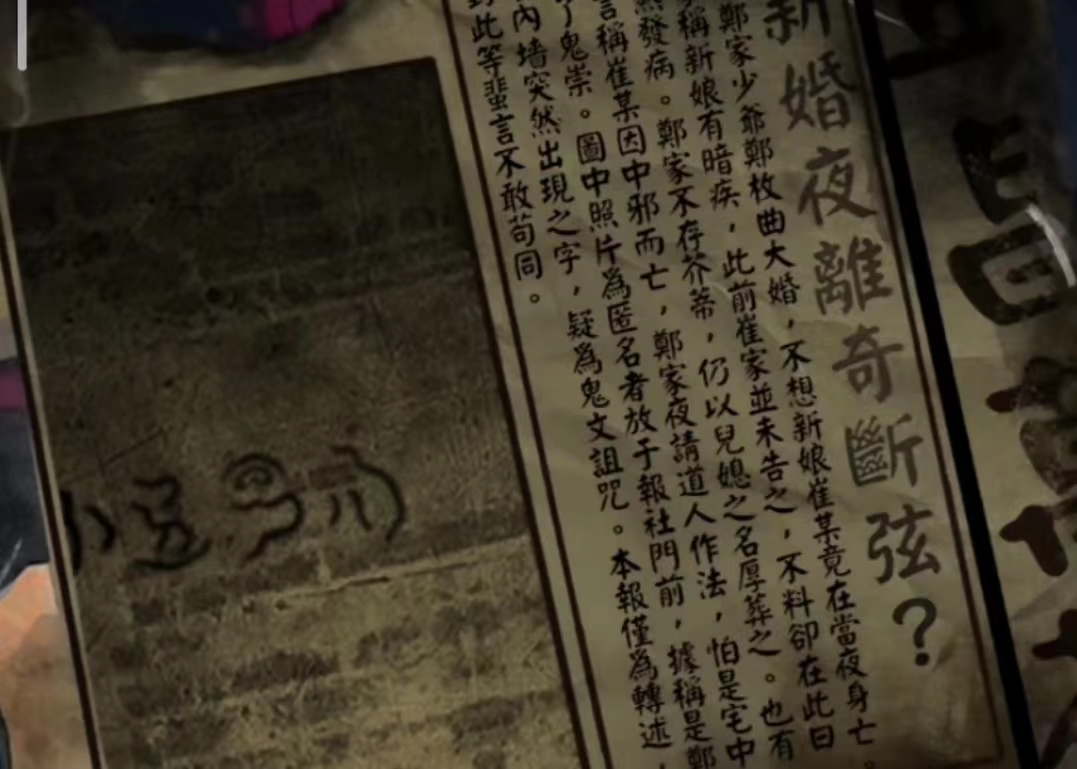 新婚夜離奇斷弦？
鄭家少爺鄭枚曲大婚，不想新娘崔某竟在當夜身亡。
稱新娘有暗疾，此前崔家並未告之，不料卻在此日
發病。鄭家不存芥蒂，仍以兒媳之名厚葬之。也有
言稱崔某因中邪而亡，鄭家夜請道人作法，怕是宅中
了鬼祟。圖中照片爲匿名者放于報社門前，據稱是鄭
內墻突然出現之字，疑爲鬼文詛咒。本報僅爲轉述，
對此等蜚言不敢苟同。